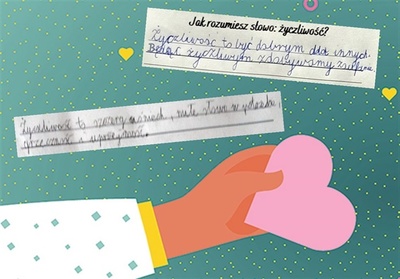 Jak rozumiesz słowo: życzliwość?
Życzliwość to być dobrym dla innych.
Będąc życzliwym zdobywamy zaufanie.
Życzliwość to szczery uśmiech, miłe słowo w potrzebie,
grzeczność i uprzejmość.